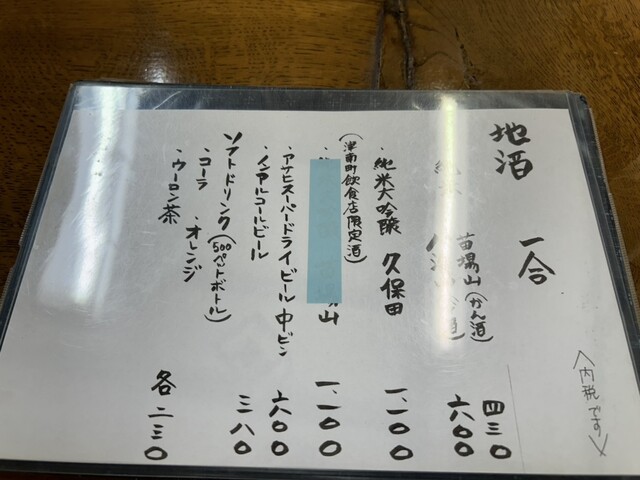 地酒 一合
〈内税です〉
苗場山(かん酒) 四三〇
純米 六〇〇
・純米大吟醸 久保田 一、一〇〇
(津南町飲食店限定酒)
山 一、一〇〇
・アサヒスーパードライビール 中ビン 六〇〇
・ノンアルコールビール 三八〇
ソフトドリンク(500ペットボトル)
・コーラ ・オレンジ
・ウーロン茶
各 二三〇